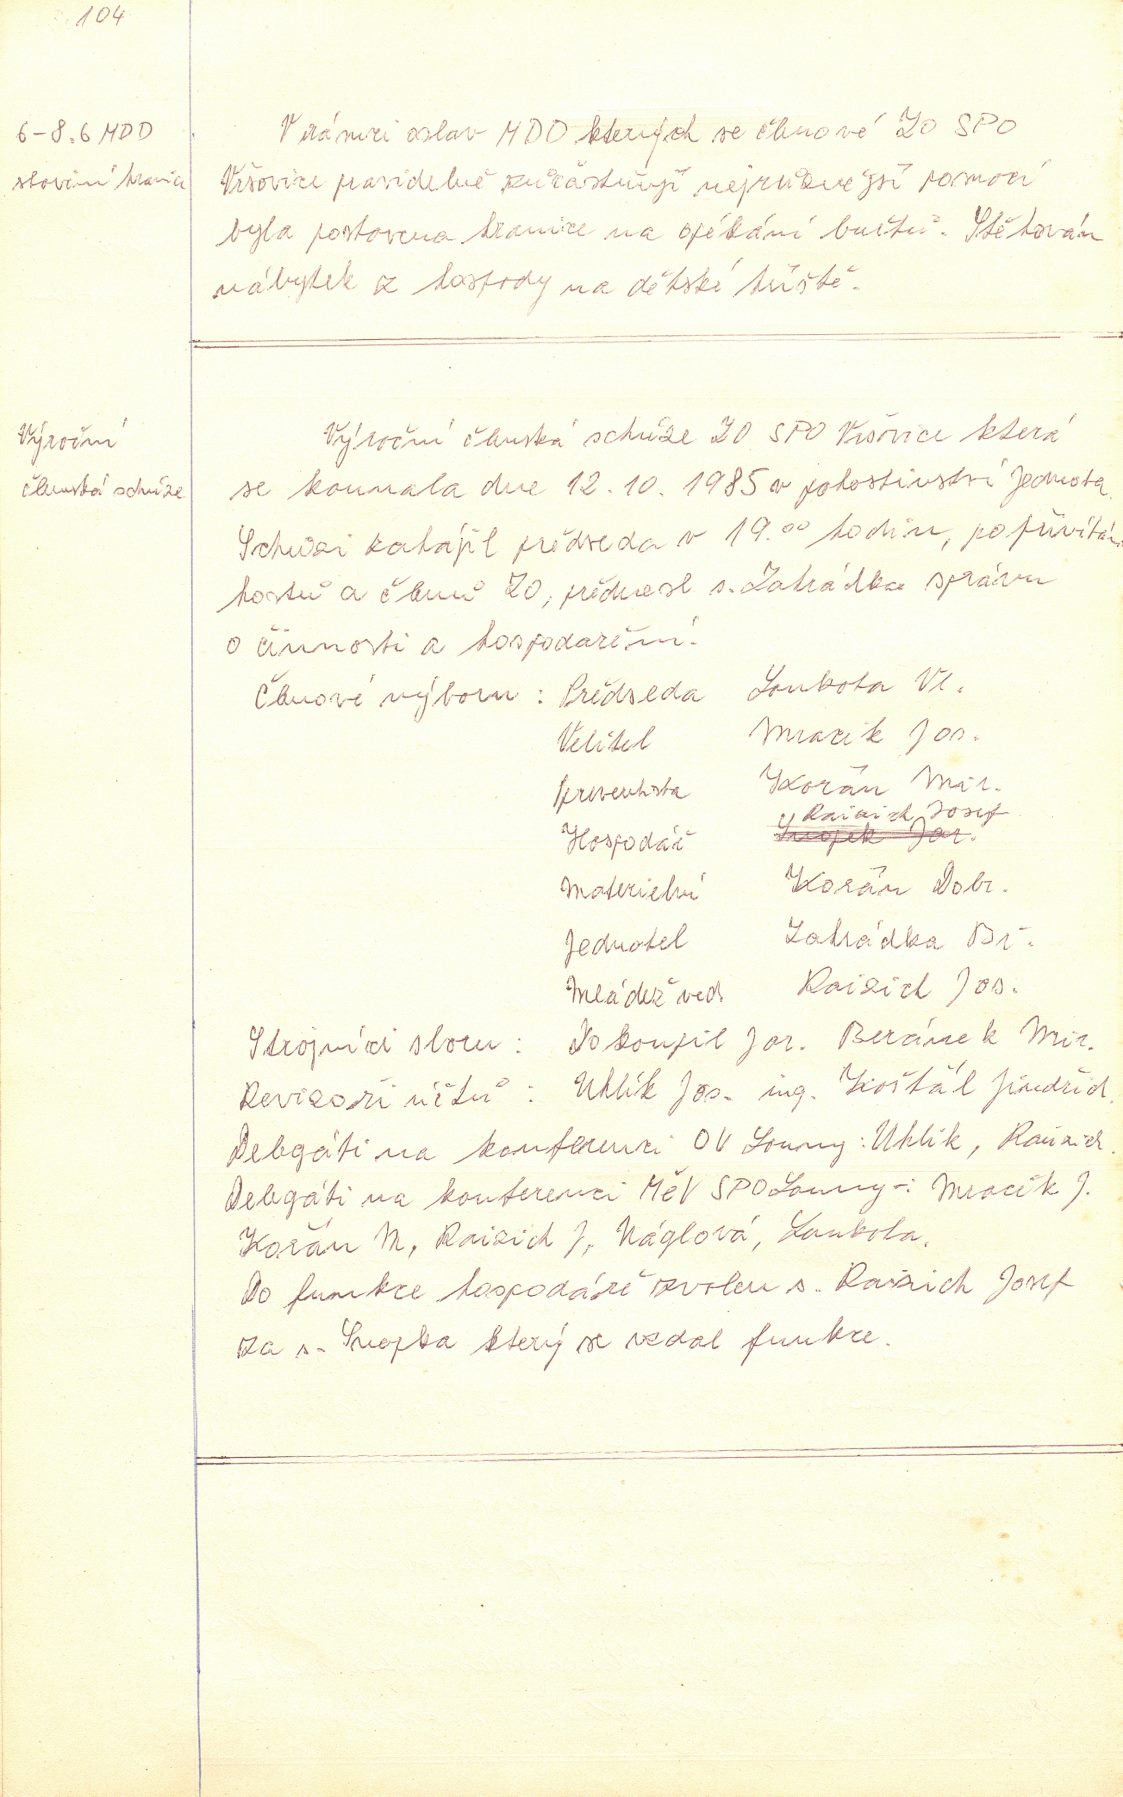 104
6-8.6 MDD
stavění hranice
V rámci oslav MDD kterých se členové ZO SPO
Vršovice pravidelně zúčastňují nejrůznější pomocí
byla postavena hranice na opékání buřtů. Stěhován
nábytek z hospody na dětské hřiště.
Výroční
členská schůze
Výroční členská schůze ZO SPO Vršovice která
se konala dne 12.10.1985 v pohostinství Jednota.
Schůzi zahájil předseda v 19.00 hodin, po přivítání
hostů a členů ZO, přednesl s. Zahrádka správu
o činnosti a hospodaření.
Členové výboru : Předseda Loukota Vl.
Velitel Mracik Jos.
preventista Kořán Mir.
Raizich Josef
Hospodář Snopek Jar.
Materielní Kořán Dobr.
Jednatel Zahrádka Bř.
Mládež ved. Raizich Jos.
Strojníci sboru : Dokoupil Jar. Beránek Mir.
Revizoři účtů : Uhlík Jos. ing. Košťál Jindřich.
Delegáti na konferenci OV Louny : Uhlík, Raizich.
Delegáti na konferenci MěV SPO Louny : Mracik J.
Kořán M, Raizich J, Náglová, Loukota.
Do funkce hospodáře zvolen s. Raizich Josef
za s. Snopka který se vzdal funkce.